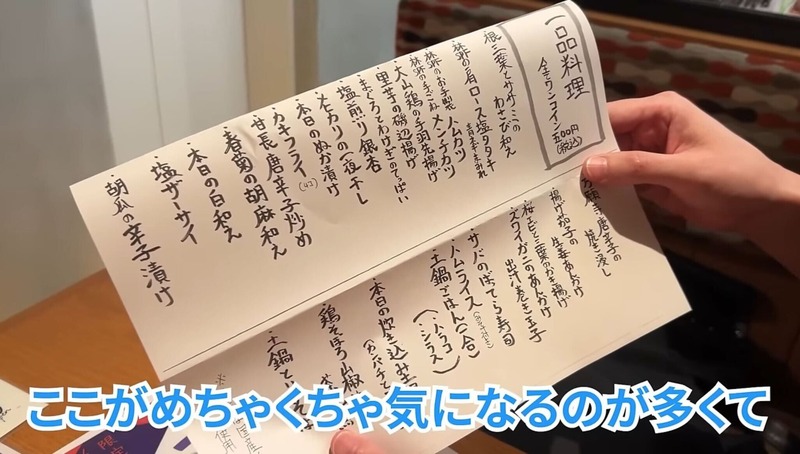 一品料理
全てワンコイン 五〇〇円
(税込)
・根三葉とササミの
わさび和え
・林SPFの肩ロース塩タタキ
・林SPFのお手製ハムカツ
・林SPFの手ごねメンチカツ
・大山鶏の手羽先揚げ
・里芋の磯辺揚げ
・まぐろとわけぎのてっぱい
・塩煎り銀杏
・本日のぬか漬け
・カキフライ
・甘長唐辛子炒め
・春菊の胡麻和え
・本日の白和え
・塩ザーサイ
・胡瓜の辛子漬け
万願寺唐辛子の
焼き浸し
揚げ茄子の
生姜あんかけ
桜エビと三葉のかき揚げ
ズワイガニのあんかけ
出汁巻き玉子
・サバのばってら寿司
・ハムライス
・土鍋ごはん(一合)
・本日の炊き込み
・鶏そぼろ山椒
・土鍋
ここがめちゃくちゃ気になるのが多くて